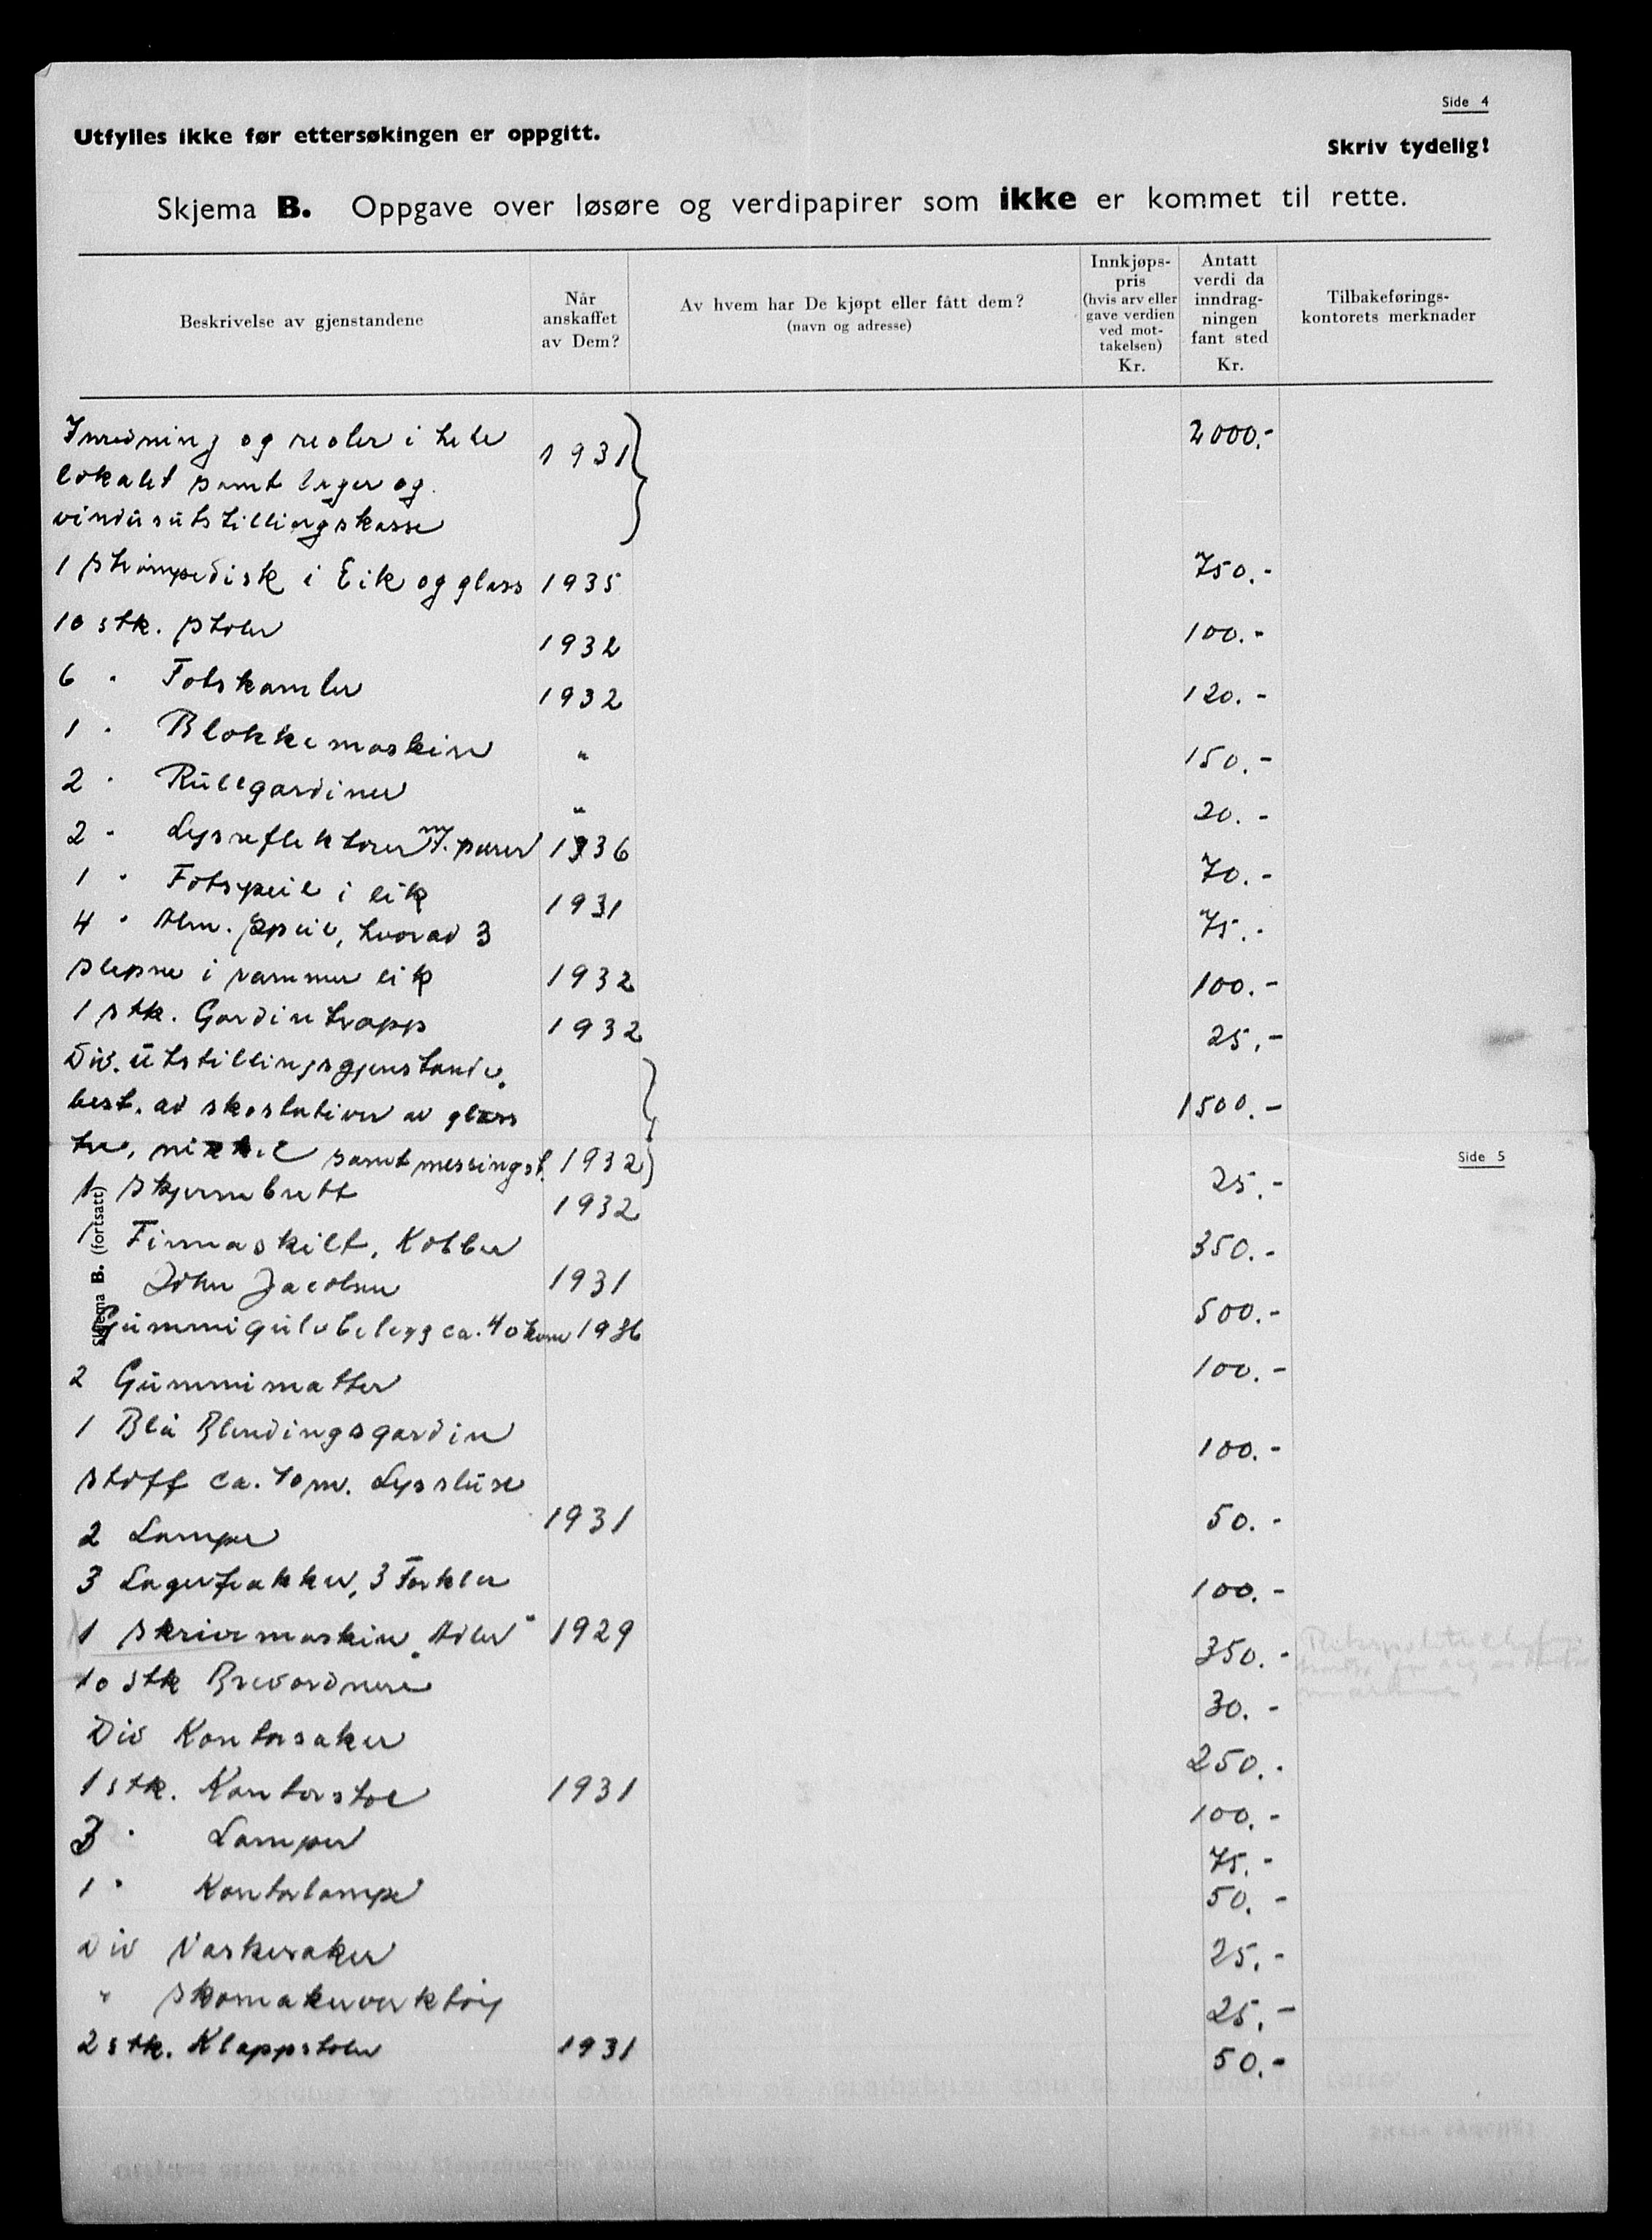 Side 4
Utfylles ikke før ettersøkingen er oppgitt.
Skriv tydelig!
Skjema B. Oppgave over løsøre og verdipapirer som ikke er kommet til rette.
Beskrivelse av gjenstandene
Når anskaffet av Dem?
Av hvem har De kjøpt eller fått dem? (navn og adresse)
Innkjøps-pris (hvis arv eller gave verdien ved mot-takelsen) Kr.
Antatt verdi da inndrag-ningen fant sted Kr.
Tilbakeførings-kontorets merknader
Inredning og reoler i hele 1931 2000.-
lokalet samt lager og
vindusutstillingskasse
1 strømpedisk i Eik og glass 1935 750.-
10 stk. stoler 1932 100.-
6 " Fotskamler 1932 120.-
1 " Blokkemaskin " 150.-
2 " Rullgardiner " 20.-
2 " Lysreflektorer m/. pærer 1936 70.-
1 " Fotspeil i eik 1931 75.-
4 " Alm. speil, hvorav 3
slepne i rammer eik 1932 100.-
1 stk. Gardintrapp 1932 25.-
Div. utstillingsgjenstande,
best. av skostativer av glass 1500.-
tre, nikkel samt messingst. 1932
1 skjermbrett 1932 25.-
Side 5
Skjema B. (fortsatt)
1 Firmaskilt, Kobber 350.-
John Jacobsen 1931
Gummigulvbelegg ca. 40 kvm 1936 500.-
2 Gummimatter 100.-
1 Blå Blendingsgardin
stoff ca. 10 m. Lyssluse 100.-
2 Lamper 1931 50.-
3 Lagerfrakker, 3 Forkler 100.-
1 skrivemaskin "Adler" 1929 350.-
10 stk Brevordnere 30.-
Div Kontorsaker 250.-
1 stk. Kontorstol 1931 100.-
3 " Lamper 75.-
1 " Kontorlampe 50.-
Div Vaskesaker 25.-
" skomakerverktøy 25.-
2 stk. Klappstoler 1931 50.-